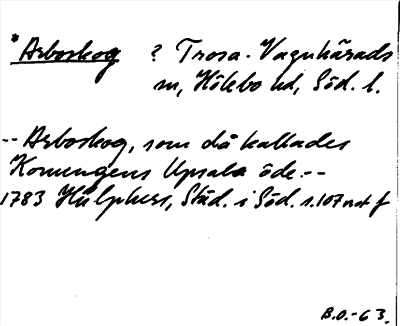 * Arboskog ? Trosa-Vagnhärads
sn, Hölebo hd, Söd. l.
-- Arboskog, som då kallades
Konungens Upsala öde. --
1783 Hülphers, Städ. i Söd. s. 107 not f
B.O.-63.